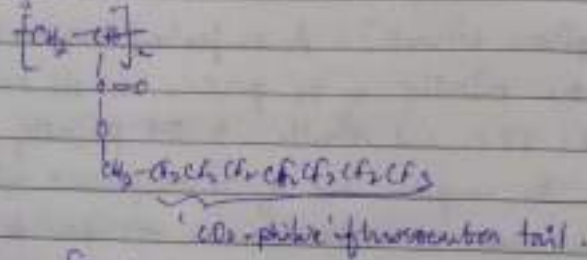 [CH2-CH]n
C=O
O
CH2-CF2CF2CF2CF2CF2CF2CF3
'CO2-philic' fluorocarbon tail.